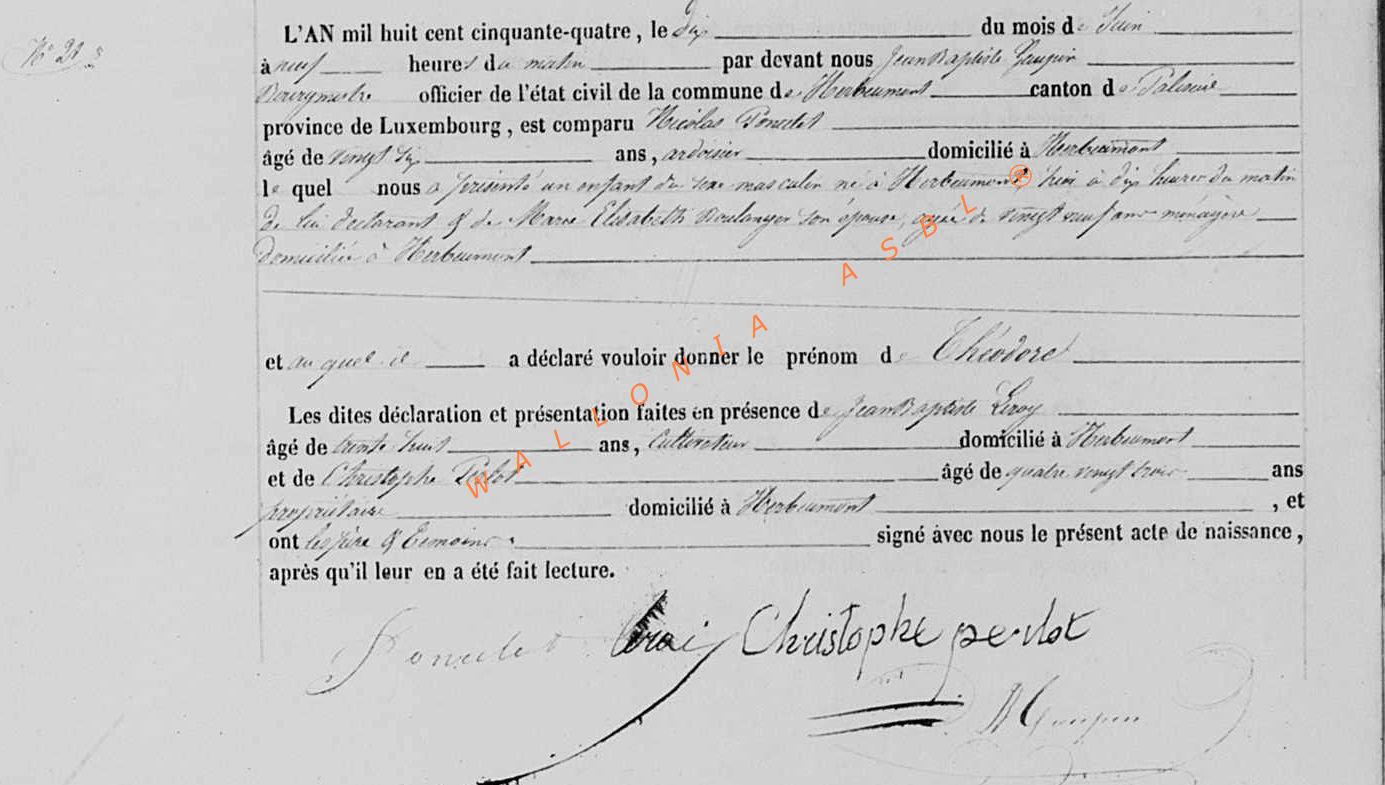 N° 21
L'AN mil huit cent cinquante-quatre, le dix du mois de Juin
à neuf heures du matin par devant nous Jean Baptiste Gaupin
Bourgmestre officier de l'état civil de la commune de Herbeumont canton de Paliseul
province de Luxembourg, est comparu Nicolas Poncelet
âgé de vingt six ans, ardoisier domicilié à Herbeumont
le quel nous a présenté un enfant du sexe masculin né à Herbeumont hier à dix heures du matin
de lui déclarant & de Marie Elisabeth Boulanger son épouse, agée de vingt neuf ans ménagère
domiciliée à Herbeumont
et au quel il a déclaré vouloir donner le prénom de Théodore
Les dites déclaration et présentation faites en présence de Jean Baptiste Leroy
âgé de trente huit ans, Cultivateur domicilié à Herbeumont
et de Christophe Perlot âgé de quatre vingt trois ans
propriétaire domicilié à Herbeumont, et
ont les père & témoins signé avec nous le présent acte de naissance,
après qu'il leur en a été fait lecture.
Poncelet Christophe perlot
WALLONIA ASBL ®